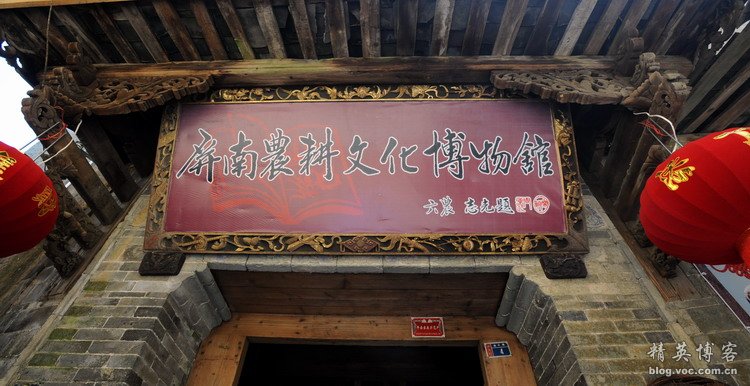 屏南農耕文化博物館
六農 志光題
精英博客
blog.voc.com.cn